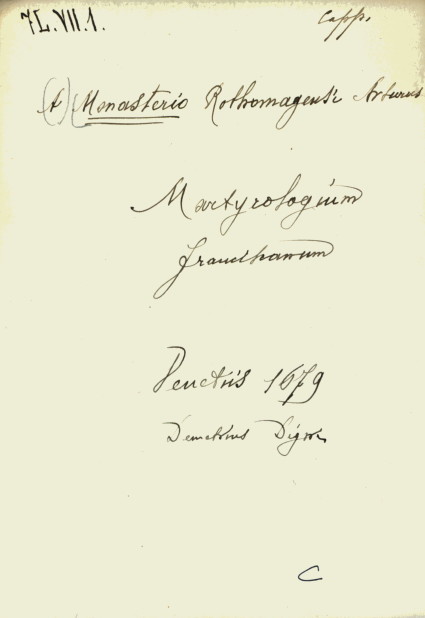 7L.VII.1.
Capp.
(A) (Monasterio Rothomagensi Arturus
Martyrologium
franciscanum
Venetiis 1679
Demetrius
C